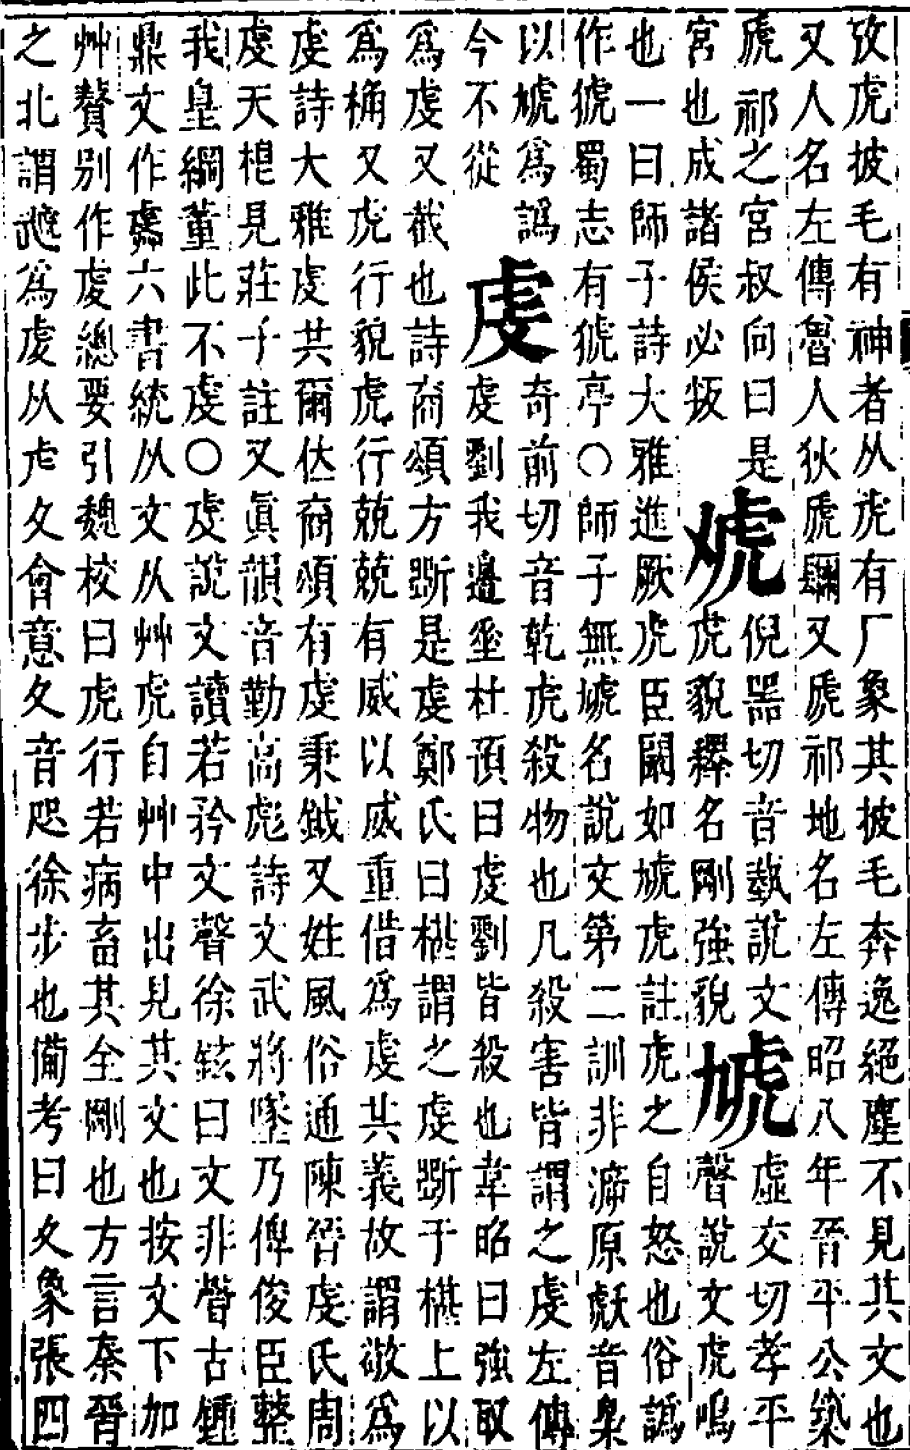 攷虎披毛有神者从虎有厂象其披毛奔逸絕塵不見其文也
又人名左傳魯人狄虒彌又虒祁地名左傳昭八年晉平公築
虒祁之宮叔向曰是
宮也成諸侯必叛
䖊
倪噐切音埶說文
虎貌釋名剛強貌
虓
虛交切孝平
聲說文虎鳴
也一曰師子詩大雅進厥虎臣闞如虓虎註虎之自怒也俗譌
作猇蜀志有猇亭○師子無虓名說文第二訓非 原 音梟
以虓為譌
今不從
虔
奇前切音乾虎殺物也凡殺害皆謂之虔左傳
虔劉我邊垂杜預曰虔劉皆殺也韋昭曰強取
為虔又截也詩商頌方斵是虔鄭氏曰椹謂之虔斵于椹上以
為桷又虎行貌虎行兢兢有威以威重借為虔共義故謂敬為
虔詩大雅虔共爾位商頌有虔秉鉞又姓風俗通陳晉虔氏周
虔天棍見莊子註又眞韻音勤高彪詩文武將墜乃俾俊臣整
我皇綱董此不虔○虔說文讀若矜文聲徐鉉曰文非聲古鍾
鼎文作 六書統从文从艸虎自艸中出見其文也按文下加
艸贅別作䖍總要引魏校曰虎行若病畜其全剛也方言秦晉
之北謂 為䖍从虍夂會意夂音咫徐步也備考曰夂象張四